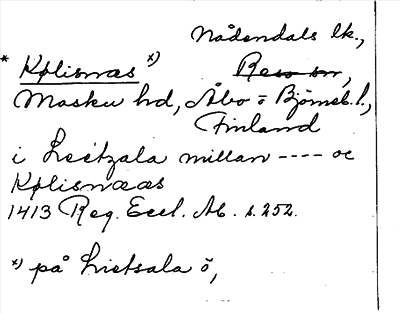 Nådendals lk.,
* Kølisnæs x) Reso sn,
Masku hd, Åbo o Björneb. l.,
Finland
i Lseitzala millan ---- oc
Kølisnææs
1413 Reg. Eccl. Ab. s. 252.
x) på Lietsala ö,